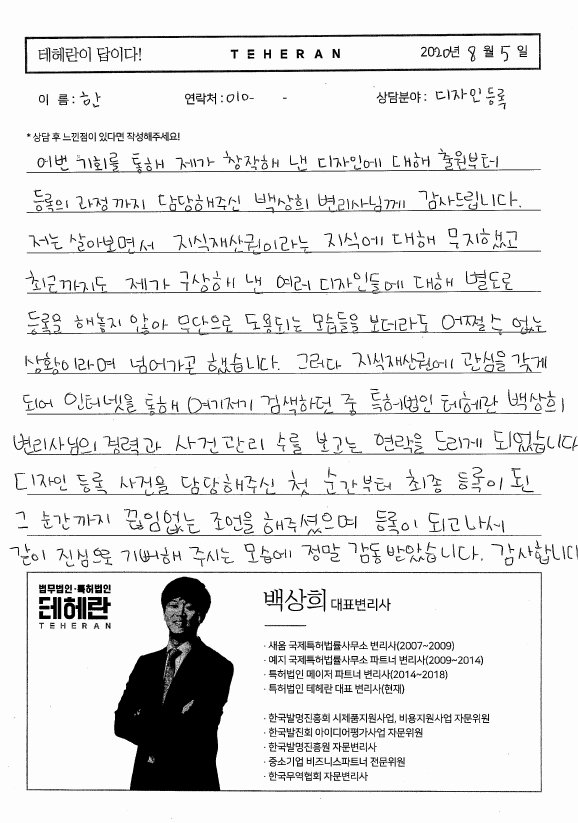 테헤란이 답이다! TEHERAN 2020년 8월 5일
이 름: 한 연락처: 010- - 상담분야: 디자인등록
* 상담 후 느낀점이 있다면 작성해주세요!
이번 기회를 통해 제가 창작해 낸 디자인에 대해 출원부터
등록의 과정까지 담당해주신 백상희 변리사님께 감사드립니다.
저는 살아보면서 지식재산권이라는 지식에 대해 무지했고
최근까지도 제가 구상해 낸 여러 디자인들에 대해 별도로
등록을 해놓지 않아 무단으로 도용되는 모습들을 보더라도 어쩔 수 없는
상황이라며 넘어가곤 했습니다. 그러다 지식재산권에 관심을 갖게
되어 인터넷을 통해 여기저기 검색하던 중 특허법인 테헤란 백상희
변리사님의 경력과 사건관리 수를 보고는 연락을 드리게 되었습니다
디자인 등록 사건을 담당해주신 첫 순간부터 최종 등록이 된
그 순간까지 끊임없는 조언을 해주셨으며 등록이 되고나서
같이 진심으로 기뻐해 주시는 모습에 정말 감동받았습니다. 감사합니다
법무법인·특허법인
테헤란
TEHERAN
백상희 대표변리사
· 새움 국제특허법률사무소 변리사(2007~2009)
· 예지 국제특허법률사무소 파트너 변리사(2009~2014)
· 특허법인 메이저 파트너 변리사(2014~2018)
· 특허법인 테헤란 대표 변리사(현재)
· 한국발명진흥회 시제품지원사업, 비용지원사업 자문위원
· 한국발진회 아이디어평가사업 자문위원
· 한국발명진흥원 자문변리사
· 중소기업 비즈니스파트너 전문위원
· 한국무역협회 자문변리사